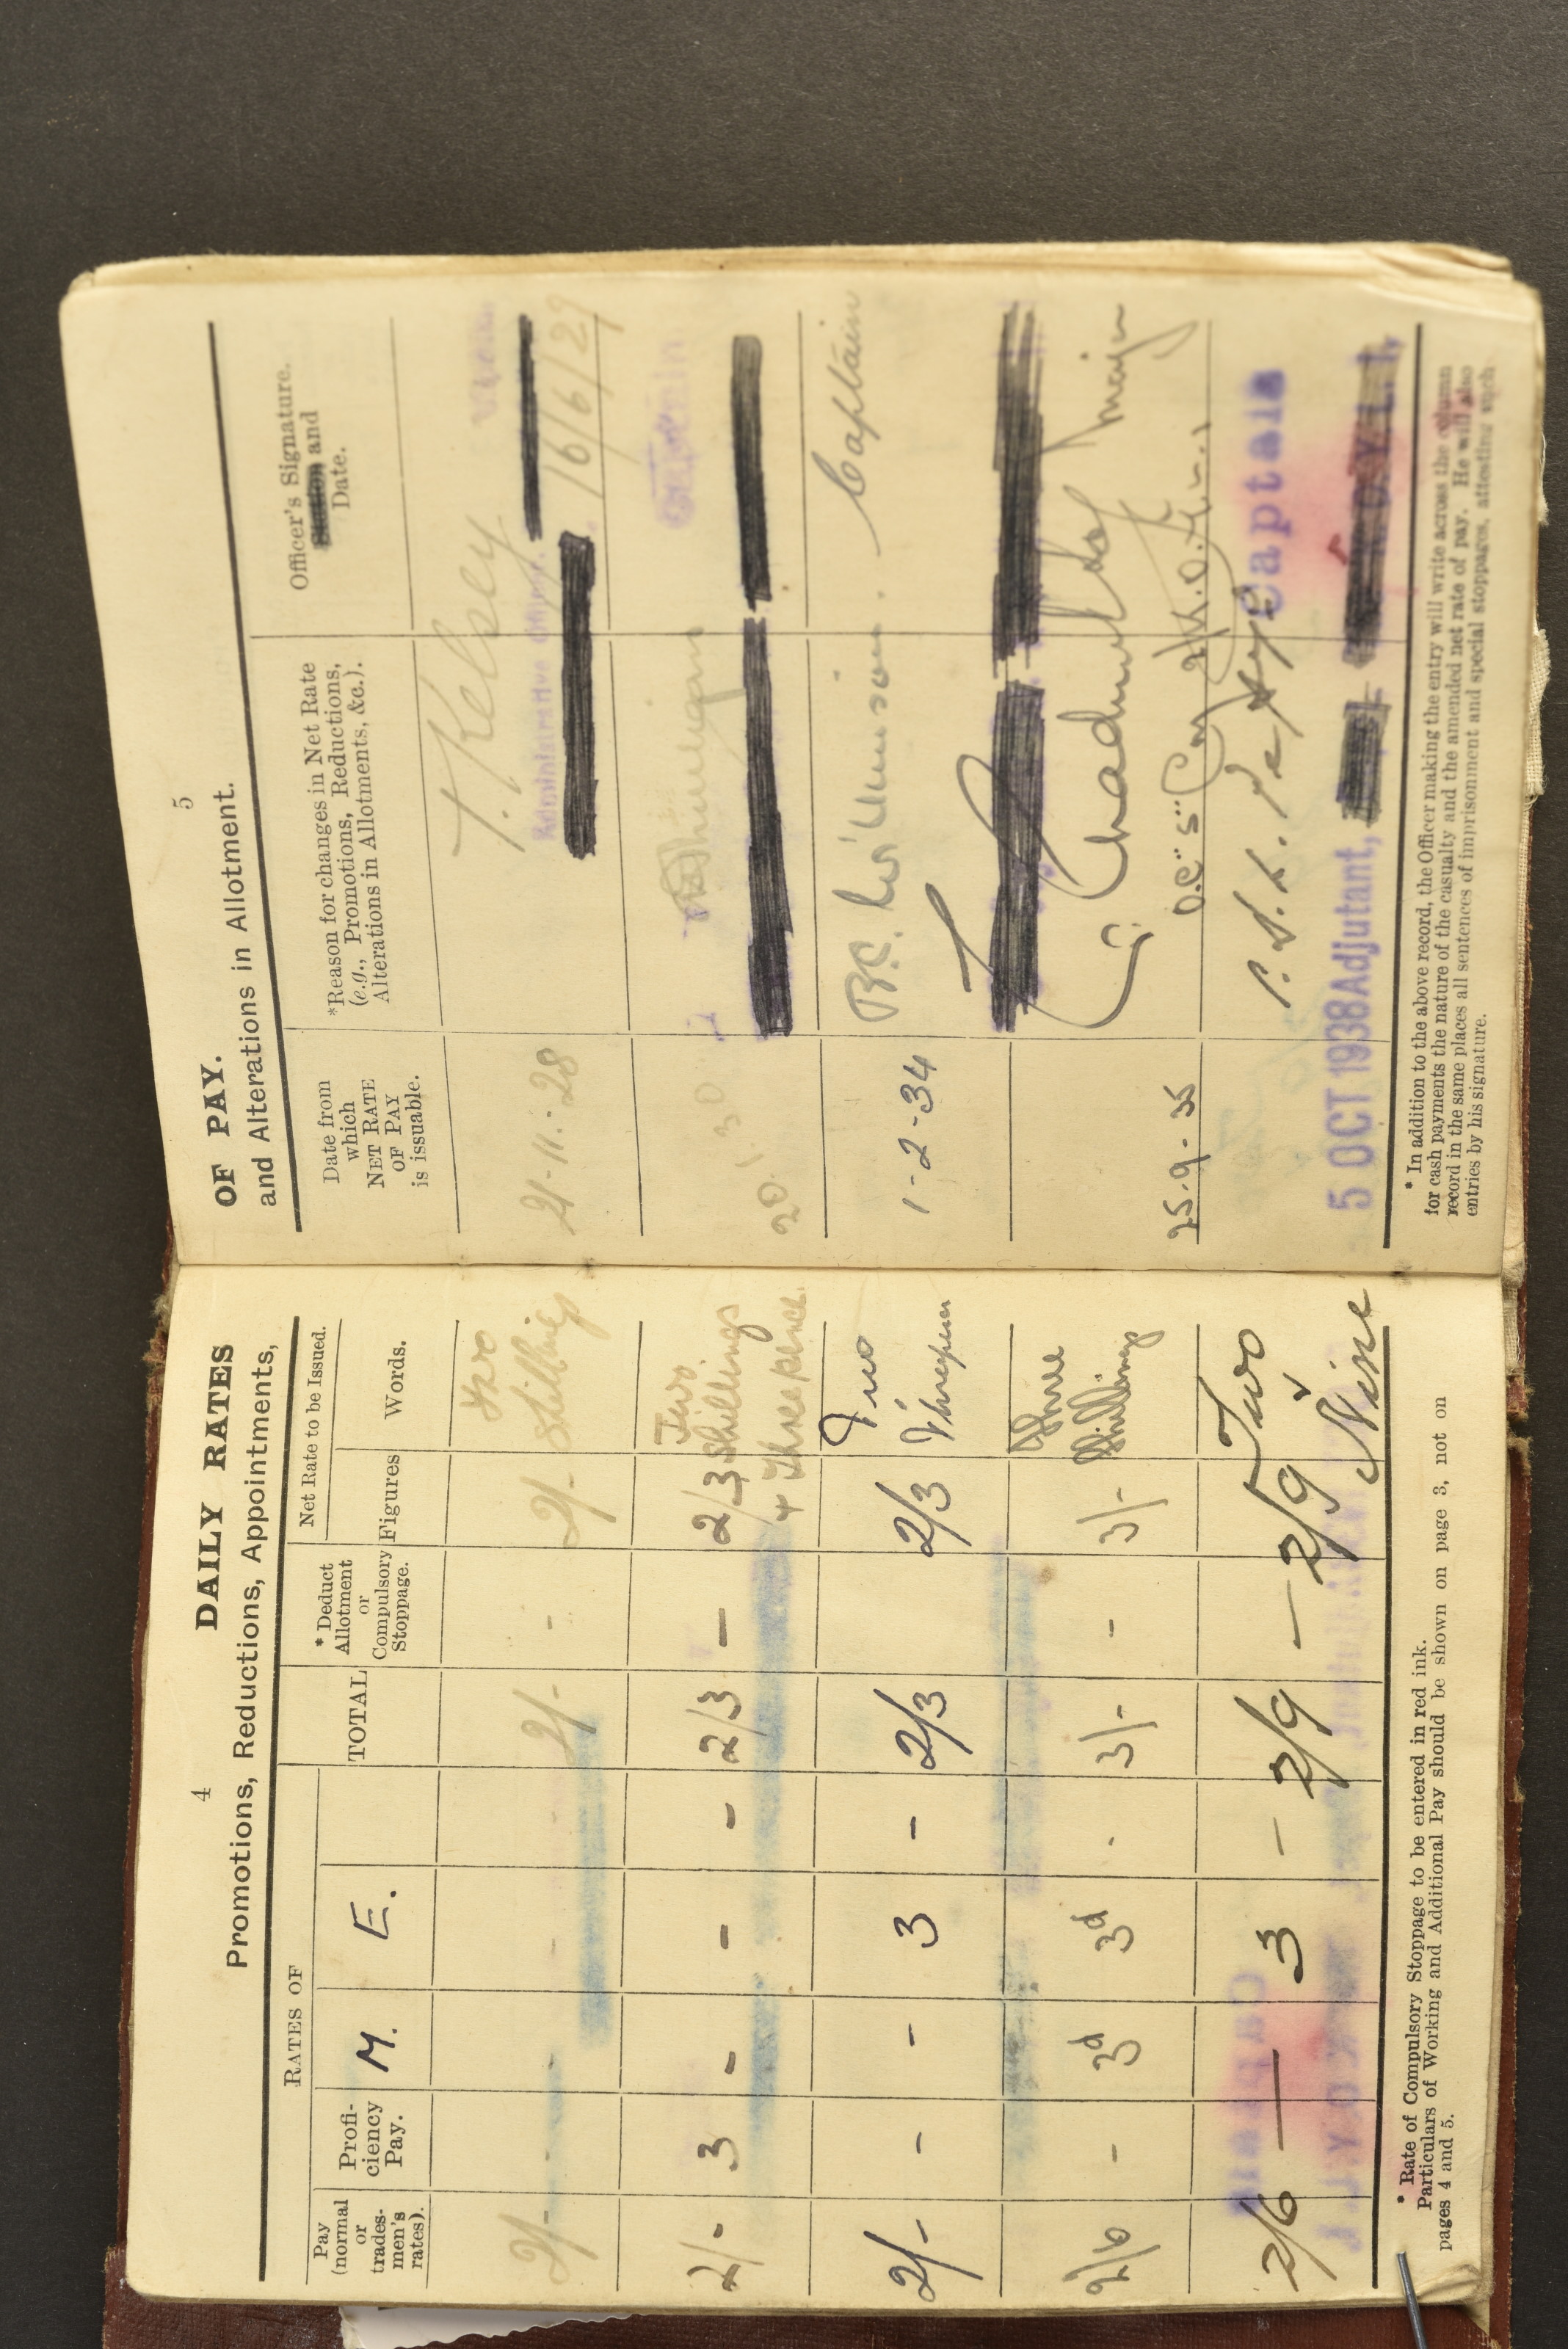 4
DAILY RATES
Promotions, Reductions, Appointments,
RATES OF
Net Rate to be Issued.
Pay (normal or trades-men's rates).
Profi-ciency Pay.
M.
E.
TOTAL
* Deduct Allotment or Compulsory Stoppage.
Figures
Words.
2/- - 2/- - 2/- Two Shillings
2/- 3 - - - 2/3 - 2/3 Two Shillings + Threepence.
2/- - - 3 - 2/3 2/3 Two Threepence
2/6 - 3d 3d . 3/- - 3/- Three Shillings
2/6 — 3 - 2/9 — 2/9 Two Nine
* Rate of Compulsory Stoppage to be entered in red ink.
Particulars of Working and Additional Pay should be shown on page 3, not on
pages 4 and 5.
5
OF PAY.
and Alterations in Allotment.
Date from
which
NET RATE
OF PAY
is issuable.
*Reason for changes in Net Rate
(e.g., Promotions, Reductions,
Alterations in Allotments, &c.).
Officer's Signature.
and
Date.
21-11-28 T. Kelsey
Administrative Officer.
16/6/29
20. 1 30
1-2-34 B.C. Williamson. Captain
25.9.35 Major
5 OCT 1938 Adjutant,
Captain
* In addition to the above record, the Officer making the entry will write across the column
for cash payments the nature of the casualty and the amended net rate of pay. He will also
record in the same places all sentences of imprisonment and special stoppages, attesting such
entries by his signature.